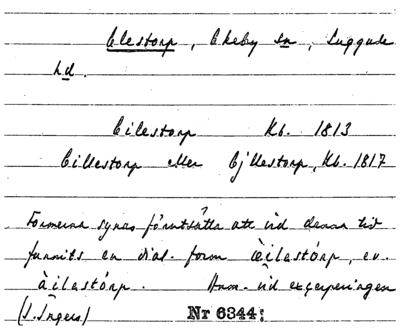 Elestorp, Ekeby sn, Luggude
hd.
Eilestorp Kb. 1813
Eillestorp eller Ejllestorp, Kb. 1817
Formerna synas förutsätta att vid denna tid
funnits en dial. form äilastórp, ev.
àilastórp. Anm. vid excerperingen
(I. Ingers) Nr 6344: